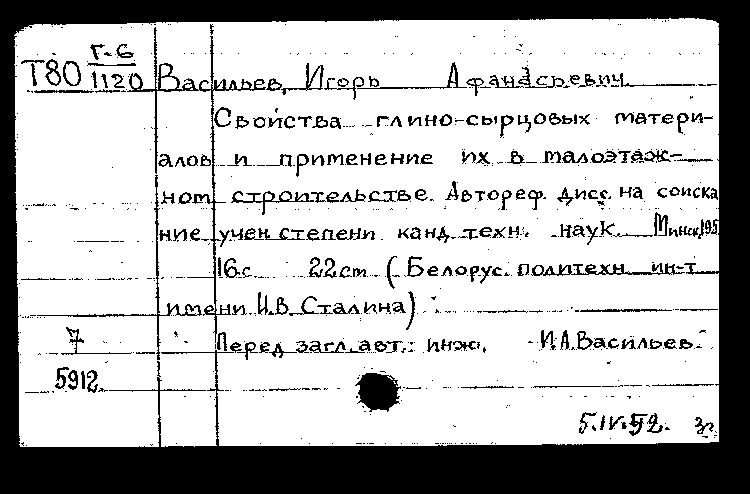 Т80 Г-6
1120
Васильев, Игорь Афанасьевич.
Свойства глино-сырцовых матери-
алов и применение их в малоэтаж-
ном строительстве. Автореф. дисс. на соиска
ние учен степени канд техн. наук. Минск, 195
16 с 22 cm (Белорус. политехн ин-т
имени И.В. Сталина)
7
Перед загл. авт.: инж. И.А. Васильев.
5912.
5.IV.52.